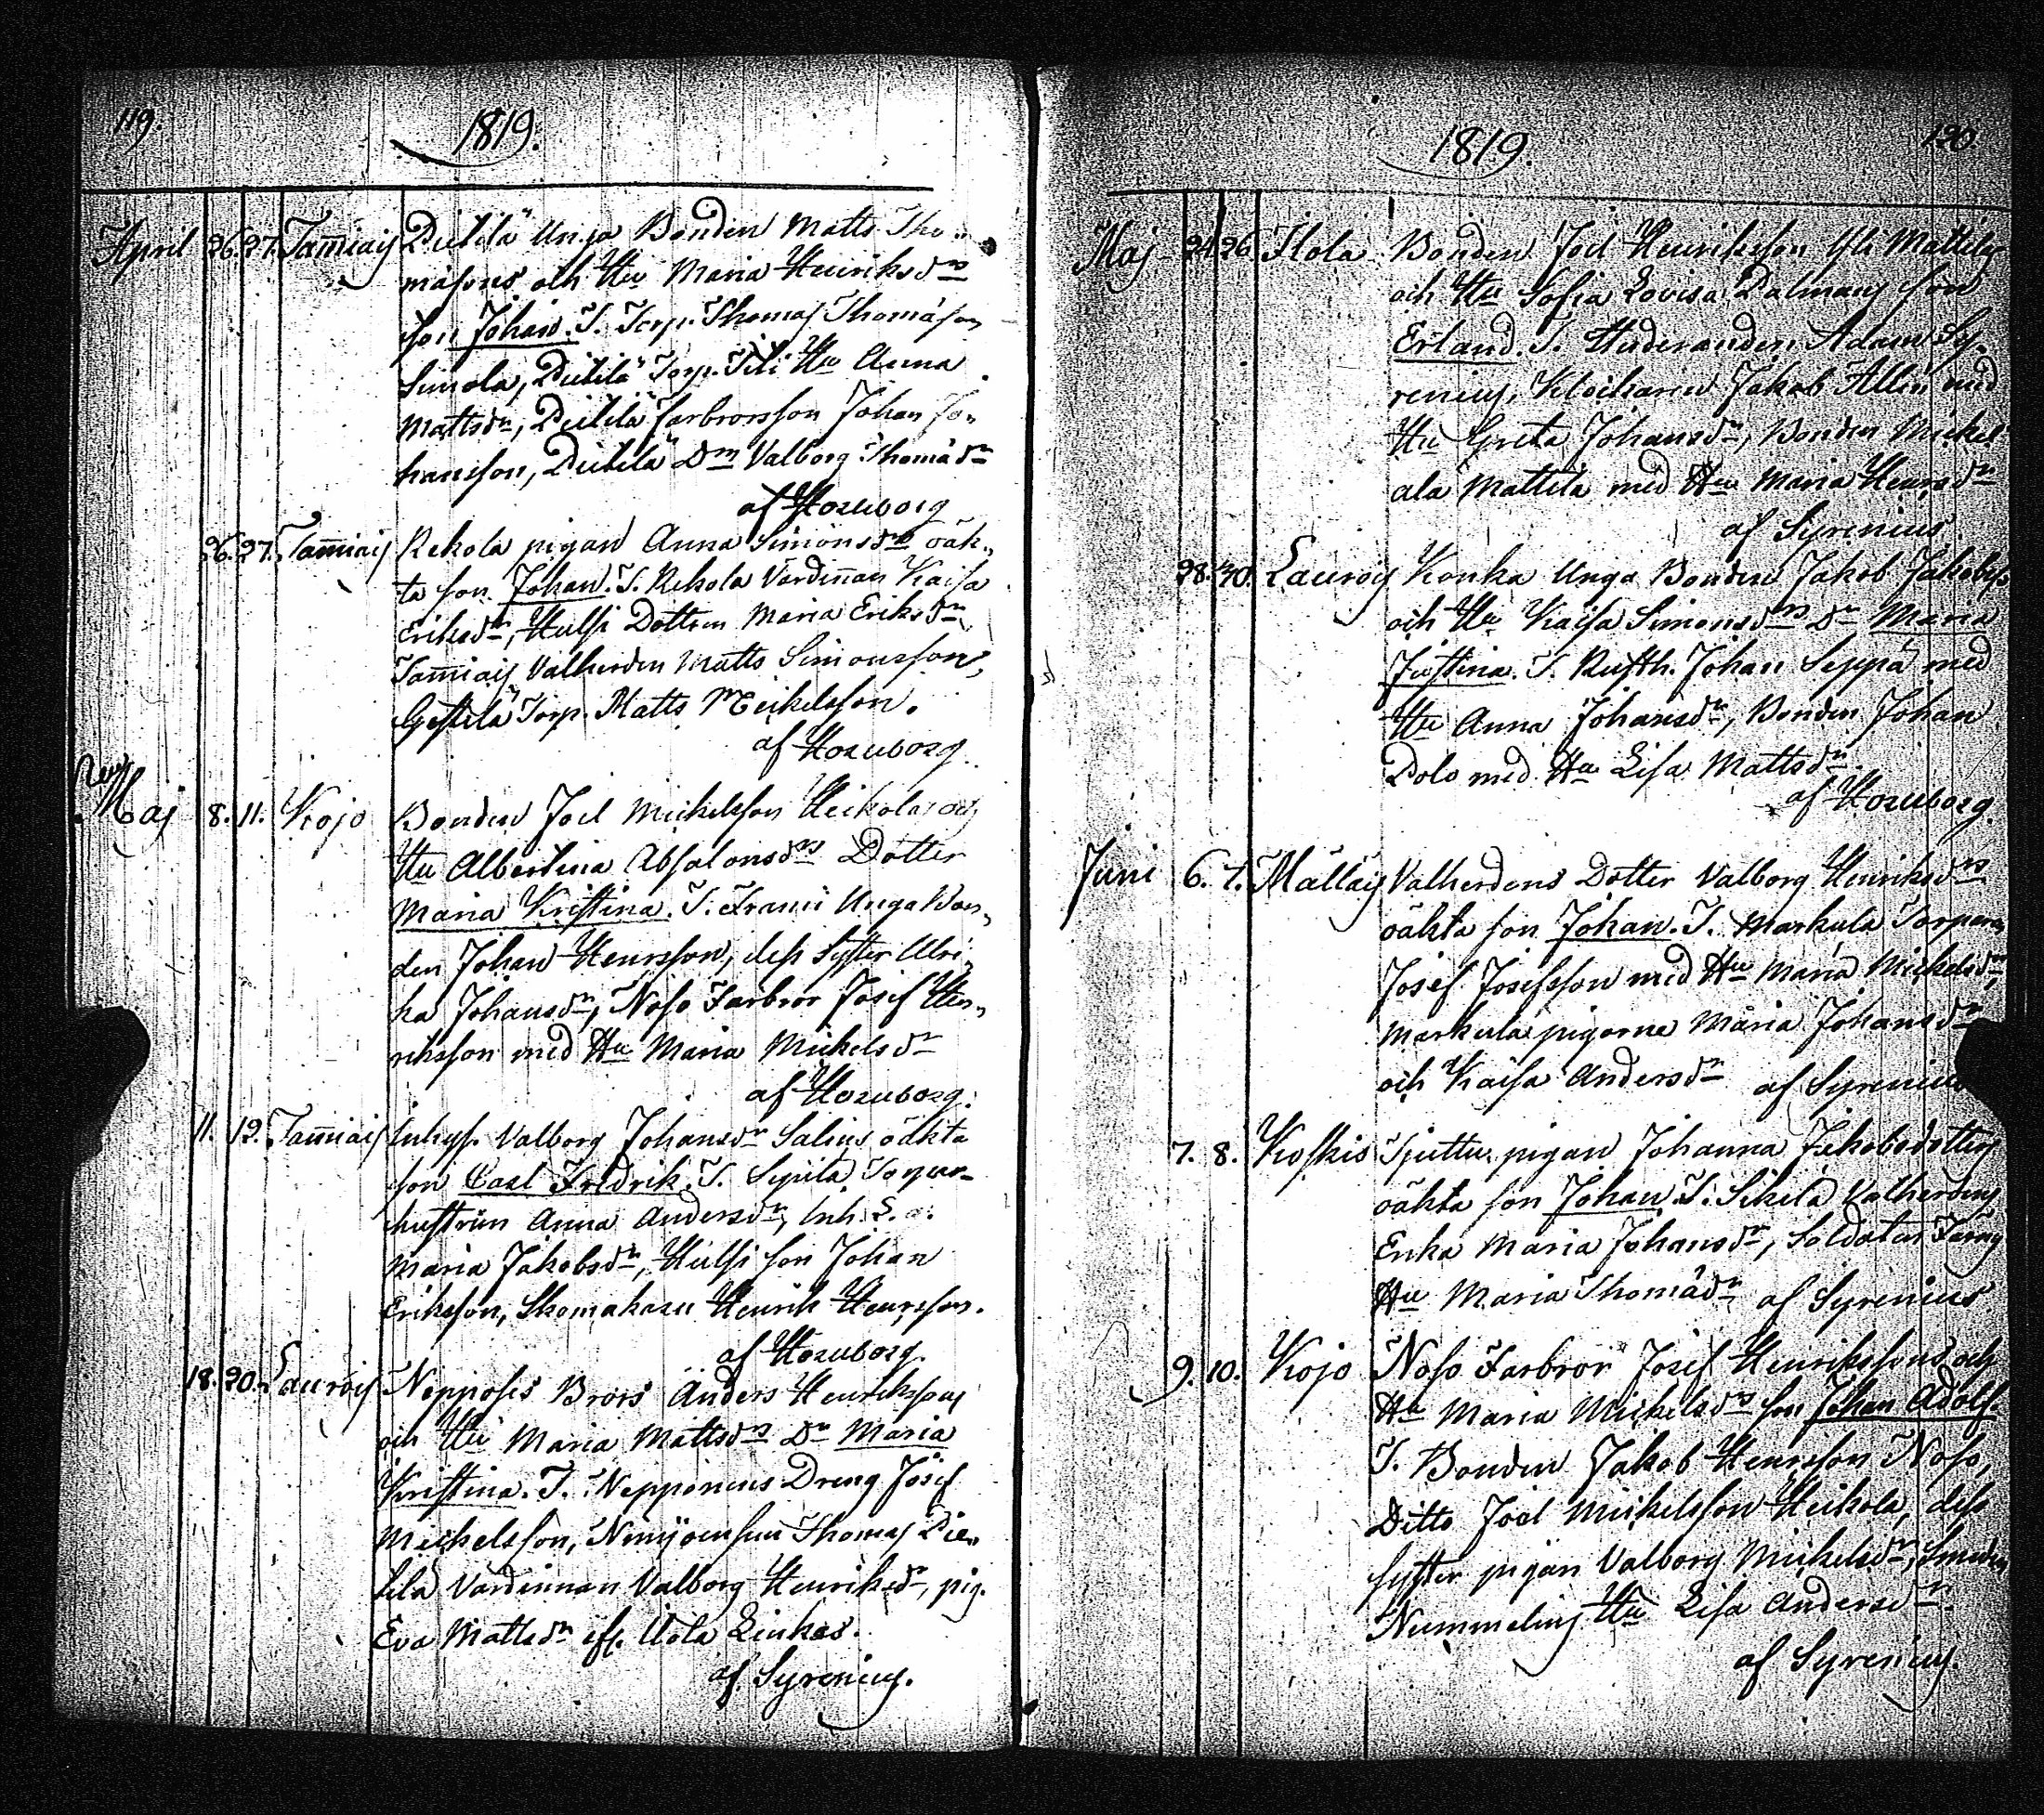 119.
1819.
April 26. 27. Tam̄iais Pietilä Unga Bonden Matts Tho„
massons och Hu Maria Henriksdrs
son Johan. T. Torp. Thomas Thomasson
Simola, Pietilä Torp. Hu Anna
Mattsdr, Pietilä farbrorsson Johan Jo„
hansson, Pietilä Dm Valborg Thomädr
af Horuborg
26. 27. Tam̄iais Rekola pigan Anna Simonsdrs oäk„
ta son Johan. T. Rekola Värdin̄an Kaisa
Eriksdr, Hulsi Dottren Maria Eriksdr,
Tam̄iais Valherden Matts Simonsson,
Torp. Matts Meikelsson.
af Horuborg.
Maj 8. 11. Kojo Bonden Joel Mickelsson Heikolas och
Hu Albertina Absalonsdrs Dotter
Maria Kristina. T. Unga Bon„
den Johan Henrsson, dess Syster Ulri„
ka Johansdr, Noso Farbror Josef Hen„
riksson med Hu Maria Mickelsdr
af Horuborg.
11. 12. Tam̄iais Inhys. Valborg Johansdr Salins oäkta
son Carl Fredrik. T. Torpar„
hustrun Anna Andersdr, Inh.
Maria Jakobsdr, Hulsi son Johan
Eriksson, Skomakaren Henrik Henrsson.
af Horuborg.
18. 20. Laurois Brors Anders Henrikssons
och Hu Maria Mattsdrs Dr Maria
Kristina. T. Nepponens Dreng Josef
Michelsson, Thomas Pie„
tilä Värdinnan Valborg Henriksdr, pig.
Eva Mattsdr
af Syrenius.
1819.
120.
Maj 24. 26. Ilola Bonden Joel Henriksson Mattilas
och Hu Sofia Lovisa Dalmans son
Erland. T. Studeranden Adam Sy„
renius, Klockaren Jakob Allen med
Hu Greta Johansdr, Bonden Mickel
ala Mattila med Hu Maria Henrsdr
af Syrenius
28. 30. Laurois Konka Unga Bonden Jakob Jakobss
och Hu Kaisa Simonsdrs Dr Maria
Justina. T. Rusth. Johan Seppä med
Hu Anna Johansdr, Bonden Johan
Polo med Hu Lisa Mattsdr.
af Horuborg.
Juni 6. 7. Mällais Valherdens Dotter Valborg Henriksdrs
oäkta son Johan. T. Markula Torparen
Josef Josefsson med Hu Maria Mickelsdr,
Markula pigorne Maria Johansdr
och Kaisa Andersdr af Syrenius
7. 8. Koskis Sjuttu pigan Johanna Jakobsdotters
oäkta son Johan. T. Sikilä Valherdens
Enka Maria Johansdr, Soldaten
Hu Maria Thomädr af Syrenius
9. 10. Kojo Noso Farbror Josef Henrikssons och
Hu Maria Mickelsdrs son Johan Adolf.
T. Bonden Jakob Henrsson Noso,
Ditto Joel Mickelsson Heikola, dess
syster pigan Valborg Mickelsdr, Smeden
Nummelins Hu Lisa Andersdr.
af Syrenius.